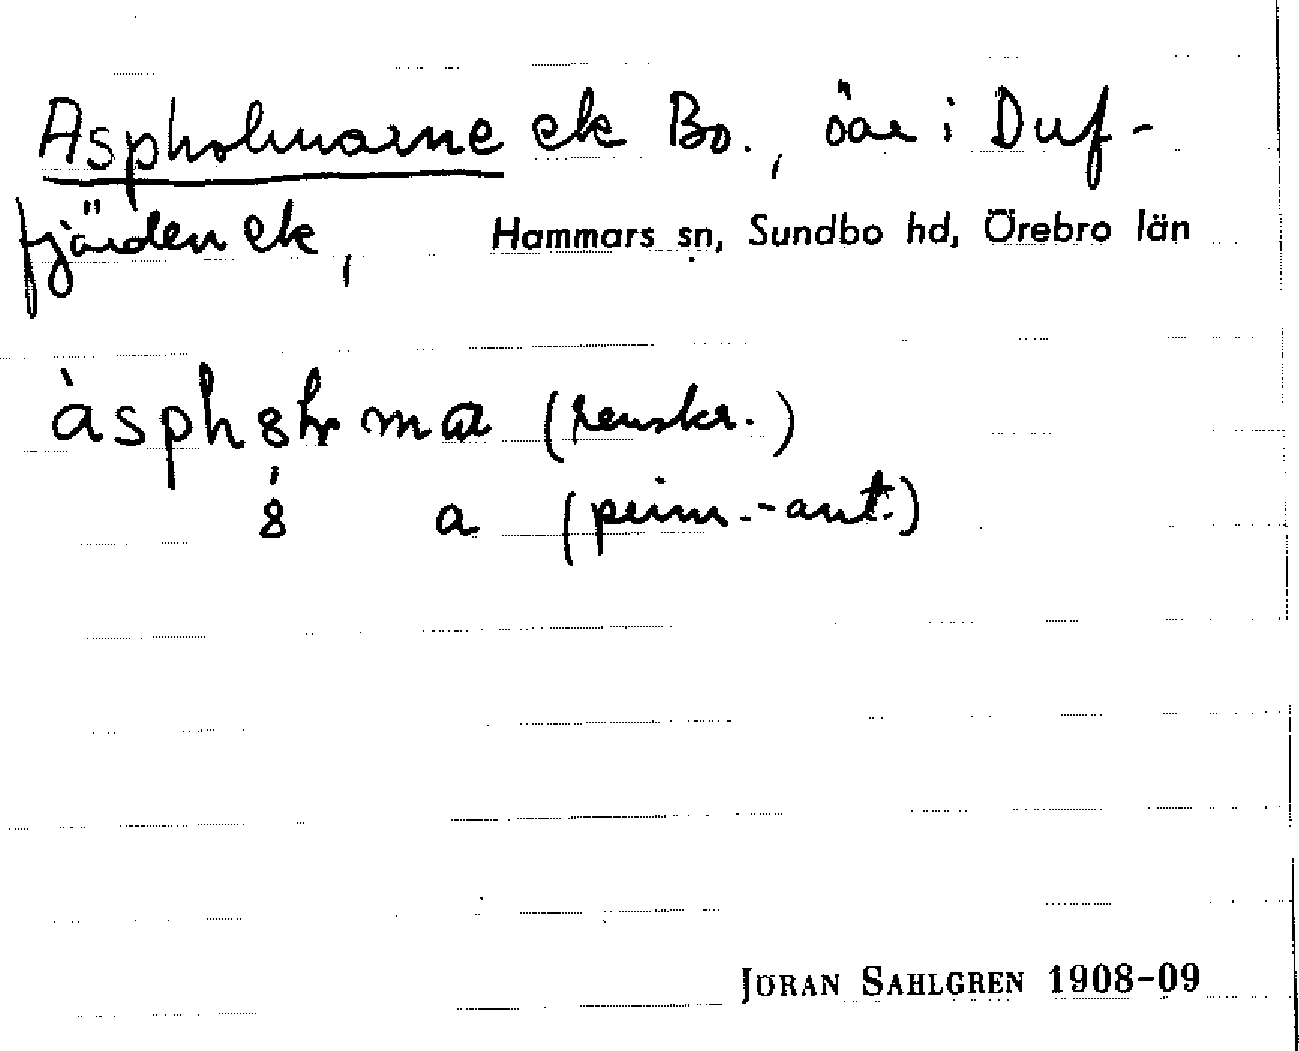 Aspholmarne ek Bo., öar i Duf-
fjärden ek, Hammars sn, Sundbo hd, Örebro län
(renskr.)
a (prim.-ant.)
JÖRAN SAHLGREN 1908-09